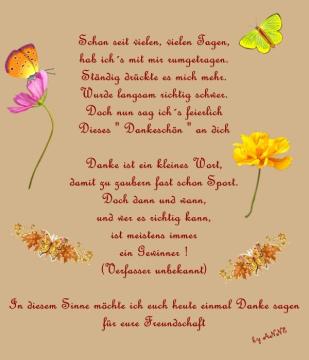 Schon seit vielen, vielen Tagen,
hab ich´s mit mir rumgetragen.
Ständig drückte es mich mehr.
Wurde langsam richtig schwer.
Doch nun sag ich´s feierlich
Dieses " Dankeschön " an dich
Danke ist ein kleines Wort,
damit zu zaubern fast schon Sport.
Doch dann und wann,
und wer es richtig kann,
ist meistens immer
ein Gewinner !
(Verfasser unbekannt)
In diesem Sinne möchte ich euch heute einmal Danke sagen
für eure Freundschaft
by ANNE